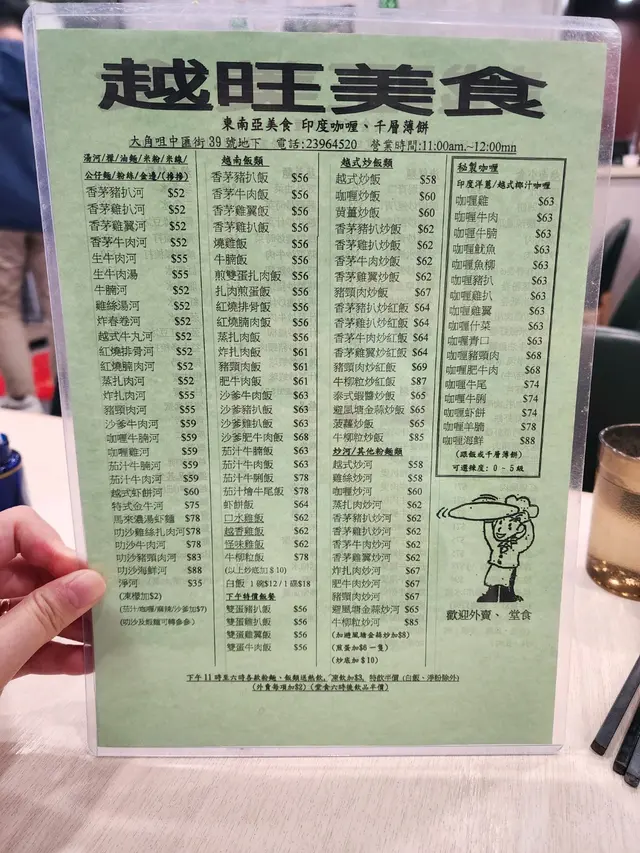 越旺美食
東南亞美食 印度咖喱、千層薄餅
大角咀中匯街 39 號地下 電話:23964520 營業時間:11:00am.~12:00mn
湯河/檬/油麵/米粉/米線/
公仔麵/粉絲/金邊/(撈撈)
香茅豬扒河 $52
香茅雞扒河 $52
香茅雞翼河 $52
香茅牛肉河 $52
生牛肉河 $55
生牛肉湯 $55
牛腩河 $52
雞絲湯河 $52
炸春卷河 $52
越式牛丸河 $52
紅燒排骨河 $52
紅燒腩肉河 $52
蒸扎肉河 $52
炸扎肉河 $55
豬頸肉河 $55
沙爹牛肉河 $59
咖喱牛腩河 $59
咖喱雞河 $59
茄汁牛腩河 $59
茄汁牛肉河 $59
越式蝦餅河 $60
特式金牛河 $75
馬來濃湯蝦麵 $78
叻沙雞絲扎肉河 $78
叻沙牛肉河 $78
叻沙豬頸肉河 $83
叻沙海鮮河 $88
淨河 $35
(凍檬加$2)
(茄汁/咖喱/麻辣/沙爹加$7)
(叻沙及蝦麵可轉多多)
越南飯類
香茅豬扒飯 $56
香茅牛肉飯 $56
香茅雞翼飯 $56
香茅雞扒飯 $56
燒雞飯 $56
牛腩飯 $56
煎雙蛋扎肉飯 $56
扎肉煎蛋飯 $56
紅燒排骨飯 $56
紅燒腩肉飯 $56
蒸扎肉飯 $56
炸扎肉飯 $61
豬頸肉飯 $61
肥牛肉飯 $61
沙爹牛肉飯 $63
沙爹豬扒飯 $63
沙爹雞扒飯 $63
沙爹肥牛肉飯 $68
茄汁牛腩飯 $63
茄汁牛肉飯 $63
茄汁牛脷飯 $78
茄汁燴牛尾飯 $78
蝦餅飯 $64
口水雞飯 $62
越香雞飯 $62
怪味雞飯 $62
牛柳粒飯 $78
(以上炒底加$10)
白飯 1 碗$12 / 1 碟$18
下午特價飯餐
雙蛋豬扒飯 $56
雙蛋雞扒飯 $56
雙蛋雞翼飯 $56
雙蛋牛肉飯 $56
越式炒飯類
越式炒飯 $58
咖喱炒飯 $60
黃薑炒飯 $60
香茅豬扒炒飯 $62
香茅雞扒炒飯 $62
香茅牛肉炒飯 $62
香茅雞翼炒飯 $62
豬頸肉炒飯 $67
香茅豬扒炒紅飯 $64
香茅雞扒炒紅飯 $64
香茅牛肉炒紅飯 $64
香茅雞翼炒紅飯 $64
豬頸肉炒紅飯 $69
牛柳粒炒紅飯 $87
泰式蝦醬炒飯 $65
避風塘金蒜炒飯 $65
菠蘿炒飯 $65
牛柳粒炒飯 $85
炒河/其他粉麵類
越式炒河 $58
雞絲炒河 $58
咖喱炒河 $60
蒸扎肉炒河 $62
香茅豬扒炒河 $62
香茅雞扒炒河 $62
香茅牛肉炒河 $62
香茅雞翼炒河 $62
炸扎肉炒河 $67
肥牛肉炒河 $67
豬頸肉炒河 $67
避風塘金蒜炒河 $65
牛柳粒炒河 $85
(加避風塘金蒜炒加$8)
(煎蛋加$6 一隻)
(炒底加$10)
秘製咖喱
印度洋蔥/越式椰汁咖喱
咖喱雞 $63
咖喱牛肉 $63
咖喱牛腩 $63
咖喱魷魚 $63
咖喱魚柳 $63
咖喱豬扒 $63
咖喱雞扒 $63
咖喱雞翼 $63
咖喱什菜 $63
咖喱青口 $63
咖喱豬頸肉 $68
咖喱肥牛肉 $68
咖喱牛尾 $74
咖喱牛脷 $74
咖喱蝦餅 $74
咖喱羊腩 $78
咖喱海鮮 $88
(跟飯或千層薄餅)
可選辣度: 0 - 5 級
歡迎外賣、堂食
下午 11 時至六時各款粉麵、飯類送熱飲, 凍飲加$3, 特飲半價 (白飯、淨粉除外)
(外賣每項加$2) (堂食六時後飲品半價)